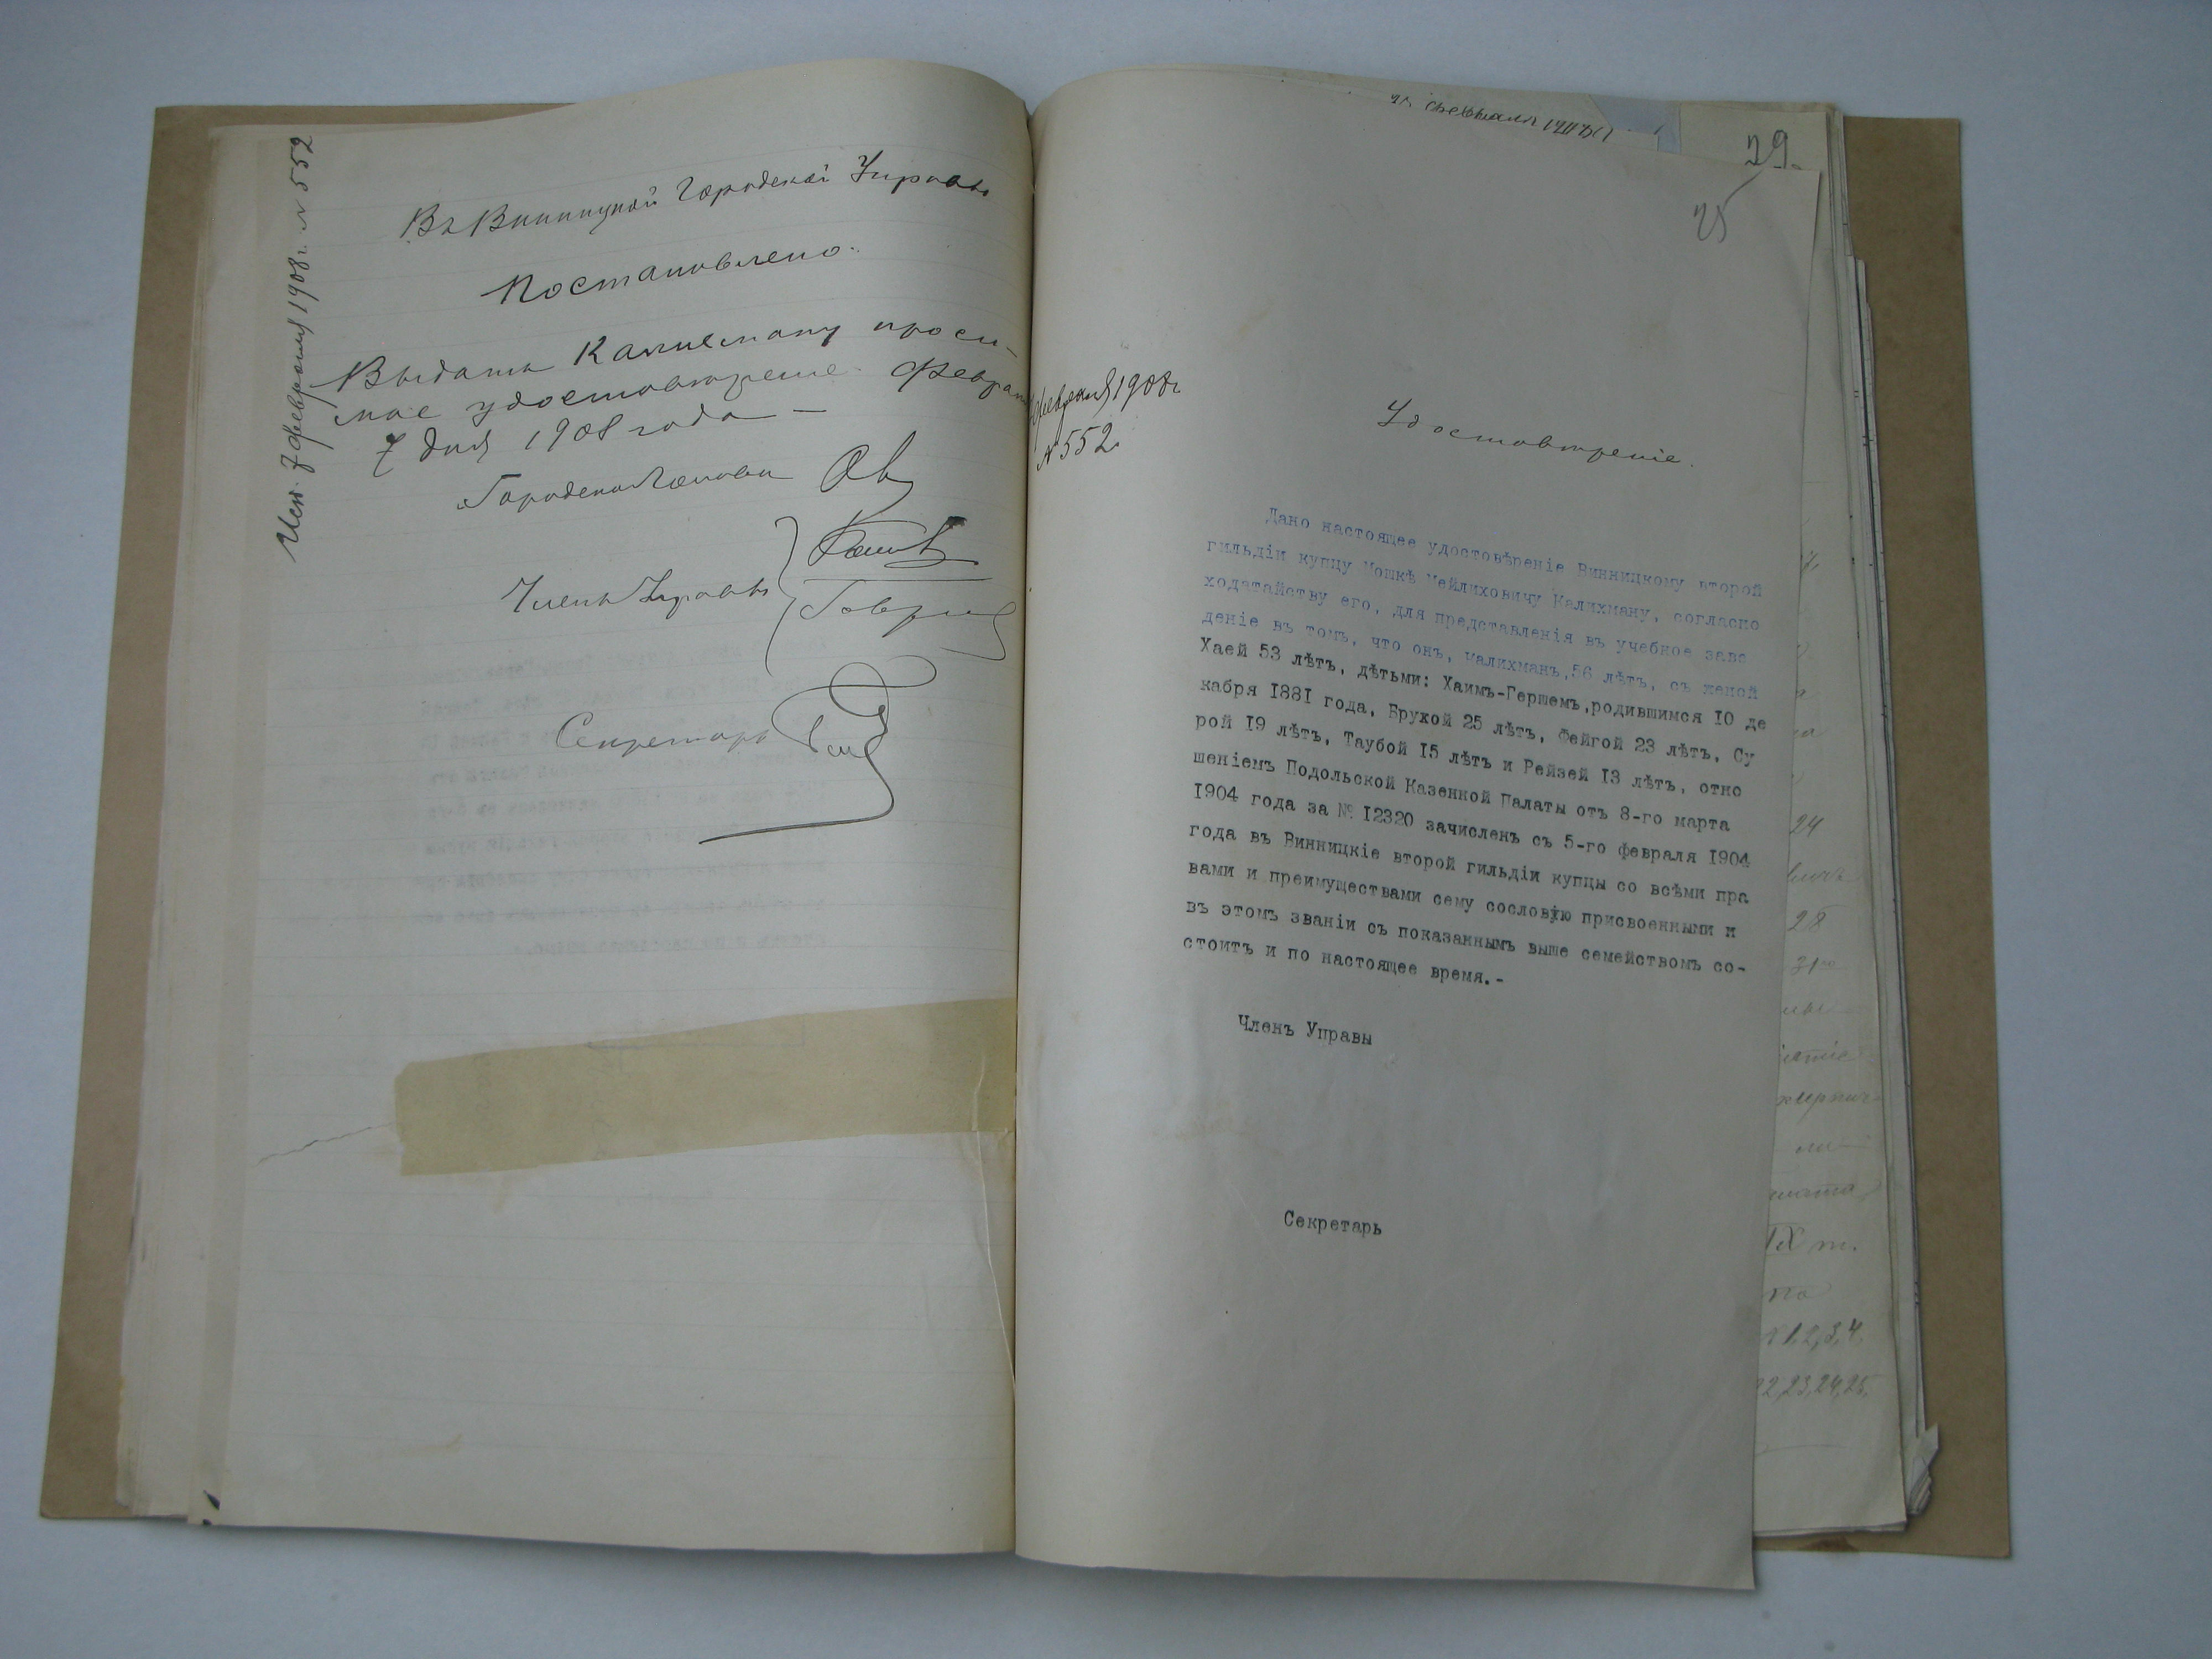 Исп. 7 февраля 1908 г. № 552
Въ Винницкой Городской Управѣ
Постановлено:
Выдать Калихману проси-
мое удостовѣреніе. Февраля
7 дня 1908 года —
Городской Голова
Члены Управы
Секретарь
29.
25
февраля 1908 г
№ 552.
Удостовѣреніе.
Дано настоящее удостовѣреніе Винницкому второй
гильдіи купцу Мошкѣ Мейлиховичу Калихману, согласно
ходатайству его, для представленія въ учебное заве
деніе въ томъ, что онъ, Калихманъ,56 лѣтъ, съ женой
Хаей 53 лѣтъ, дѣтьми: Хаимъ-Гершемъ,родившимся 10 де
кабря 1881 года, Брухой 25 лѣтъ, Фейгой 23 лѣтъ, Су
рой 19 лѣтъ, Таубой 15 лѣтъ и Рейзей 13 лѣтъ, отно
шеніемъ Подольской Казенной Палаты отъ 8-го марта
1904 года за № 12320 зачисленъ съ 5-го февраля 1904
года въ Винницкіе второй гильдіи купцы со всѣми пра
вами и преимуществами сему сословію присвоенными и
въ этомъ званіи съ показаннымъ выше семействомъ со-
стоитъ и по настоящее время.-
Членъ Управы
Секретарь
24
28
31
IX т.
по
1,2,3,4.
22,23,24,25.